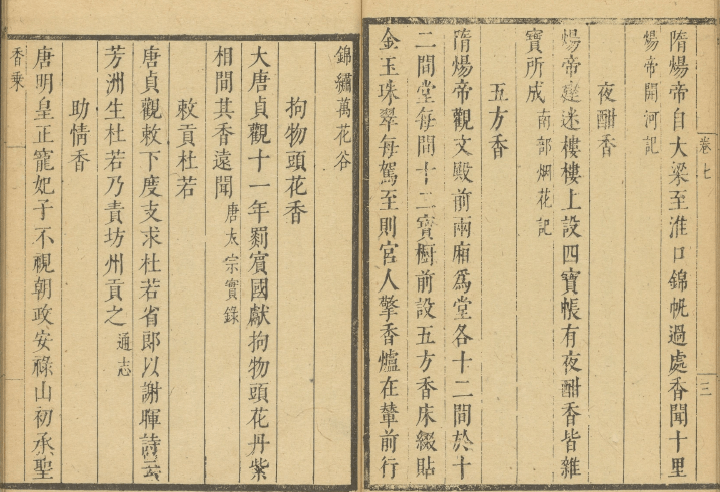 隋煬帝自大梁至淮口錦帆過處香聞十里
煬帝開河記
夜酣香
煬帝建迷樓樓上設四寶帳有夜酣香皆雜
寶所成南部烟花記
五方香
隋煬帝觀文殿前兩廂為堂各十二間於十
二間堂每間十二寶橱前設五方香床綴貼
金玉珠翠每駕至則宮人擎香爐在輦前行
卷七
三
錦繡萬花谷
拘物頭花香
大唐貞觀十一年罽賓國獻拘物頭花丹紫
相間其香遠聞唐太宗實錄
敕貢杜若
唐貞觀敕下度支求杜若省郎以謝暉詩云
芳洲生杜若乃責坊州貢之通志
助情香
唐明皇正寵妃子不視朝政安祿山初承聖
香乘